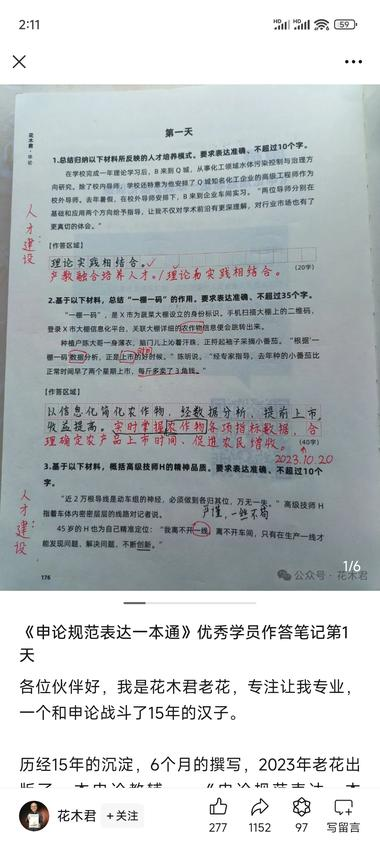 2:11
HD HD 59
花木君·申论
第一天
1.总结归纳以下材料所反映的人才培养模式。要求表达准确、不超过10个字。
在学校完成一年理论学习后，B来到Q城，从事化工领域水体污染控制与治理方
向研究。除了校内导师，学校还特意为他安排了Q城知名化工企业的高级工程师作为
校外导师。去年暑假，在校外导师安排下，B来到企业车间实习。“两位导师分别在
基础和应用两个方向给予指导，让我不仅对学术前沿有更深理解，对行业市场也有了
更真切的体会。”
人才建设
【作答区域】
理论实践相结合。
产教融合培养人才。/理论与实践相结合。
(20字)
2.基于以下材料，总结“一棚一码”的作用。要求表达准确、不超过35个字。
“一棚一码”，是X市为蔬菜大棚设立的身份标识。手机扫描大棚上的二维码，
登录X市大棚信息化平台，关联大棚详细的农作物信息便会跳转出来。
种植户陈大哥一身薄衣，脑门儿上沁着汗珠，正捋起袖子采摘小番茄。“根据‘一
棚一码’数据分析，正是上市的好时候。”陈明说。“经专家指导，去年种的小番茄比
正常时间早了两个星期上市，每斤多卖了3角钱。”
时间
【作答区域】
以信息化简化农作物，经数据分析、提前上市，
收益提高。实时掌握农作物各项指标数据，合
理确定农产品上市时间、促进农民增收。
(40字)
2023.10.20
3.基于以下材料，概括高级技师H的精神品质。要求表达准确、不超过10个
字。
人才建设
“近2万根导线是动车组的神经，必须做到各归其位，万无一失。”高级技师H
指着车体内密密层层的线路对记者说。
严谨，一丝不苟
45岁的H也为自己精准定位：“我离不开一线，离不开车间，只有在生产一线才
能发现问题、解决问题，不断创新。”
176
公众号·花木君
1/6
《申论规范表达一本通》优秀学员作答笔记第1
天
各位伙伴好，我是花木君老花，专注让我专业，
一个和申论战斗了15年的汉子。
历经15年的沉淀，6个月的撰写，2023年老花出
花木君
+关注
277
1152
97
写留言